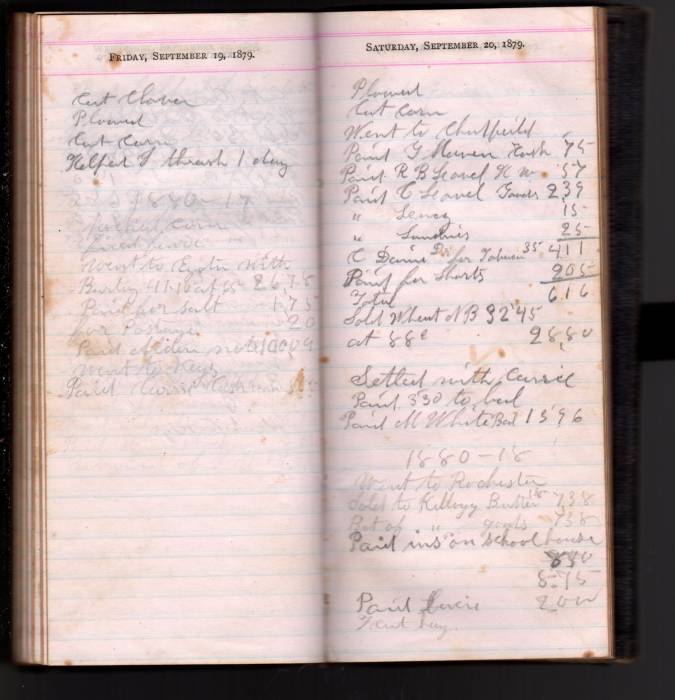 FRIDAY, SEPTEMBER 19, 1879.
Cut Clover
Plowed
Cut Corn
Helped thrash 1 day
1880-17
corn
Went to with
Barley 41-10 at 65 26.78
Paid for salt 1 75
for Postage 20
Paid note 100 09
Went to
Paid Carrie
SATURDAY, SEPTEMBER 20, 1879.
Plowed
Cut Corn
Went to Chatfield
Paid G Haven 75
Paid R B Leavel H w 57
Paid C Leavel Goods 239
" 15
" Sundries 25
C for Tobacco 35 411
Paid for Shorts 205
Total 616
Sold Wheat NB 32 45
at 88c 2880
Settled with Carrie
Paid 330 to bal
Paid M White Bal 1596
1880-18
Went to Rochester
Sold to Kellogg Butter 18 738
Bot of " goods 738
Paid ins on school house
830
8.75
Paid 200